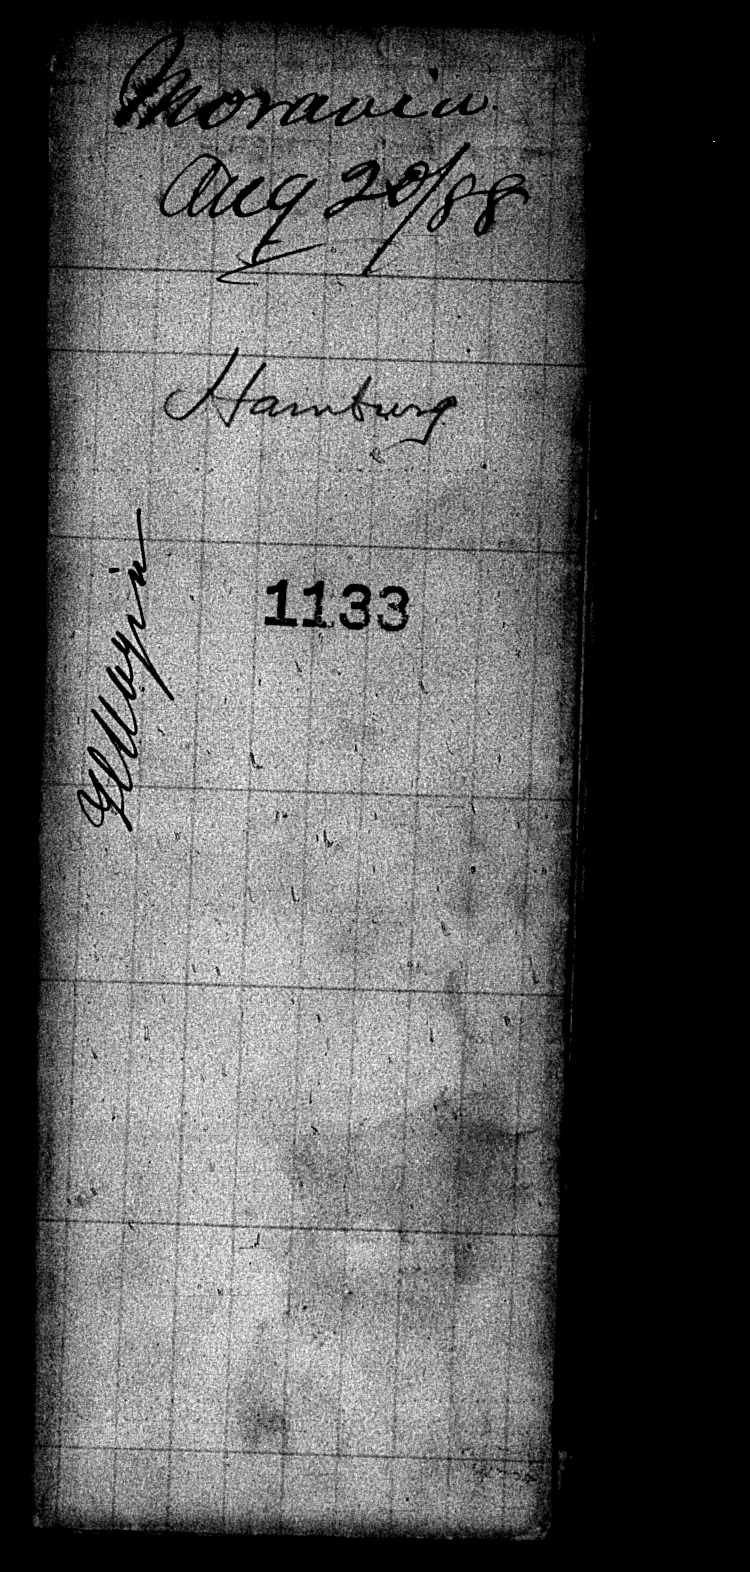 Moravia
Aug 20/88
Hamburg
1133